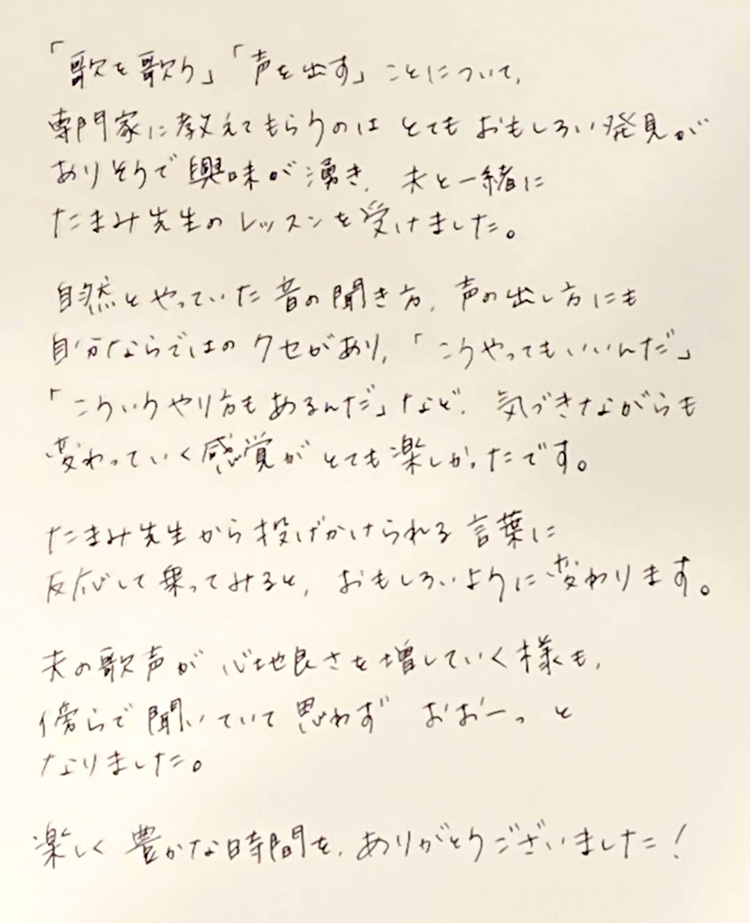 「歌を歌う」「声を出す」ことについて、
専門家に教えてもらうのは とても おもしろい発見が
ありそうで興味が湧き、夫と一緒に
たまみ先生のレッスンを受けました。
自然とやっていた音の聞き方、声の出し方にも
自分ならではのクセがあり、「こうやってもいいんだ」
「こういうやり方もあるんだ」など、気づきながらも
変わっていく感覚がとても楽しかったです。
たまみ先生から投げかけられる言葉に
反応して乗ってみると、おもしろいように変わります。
夫の歌声が心地良さを増していく様も、
傍らで聞いていて思わず おおーっと
なりました。
楽しく豊かな時間を、ありがとうございました!